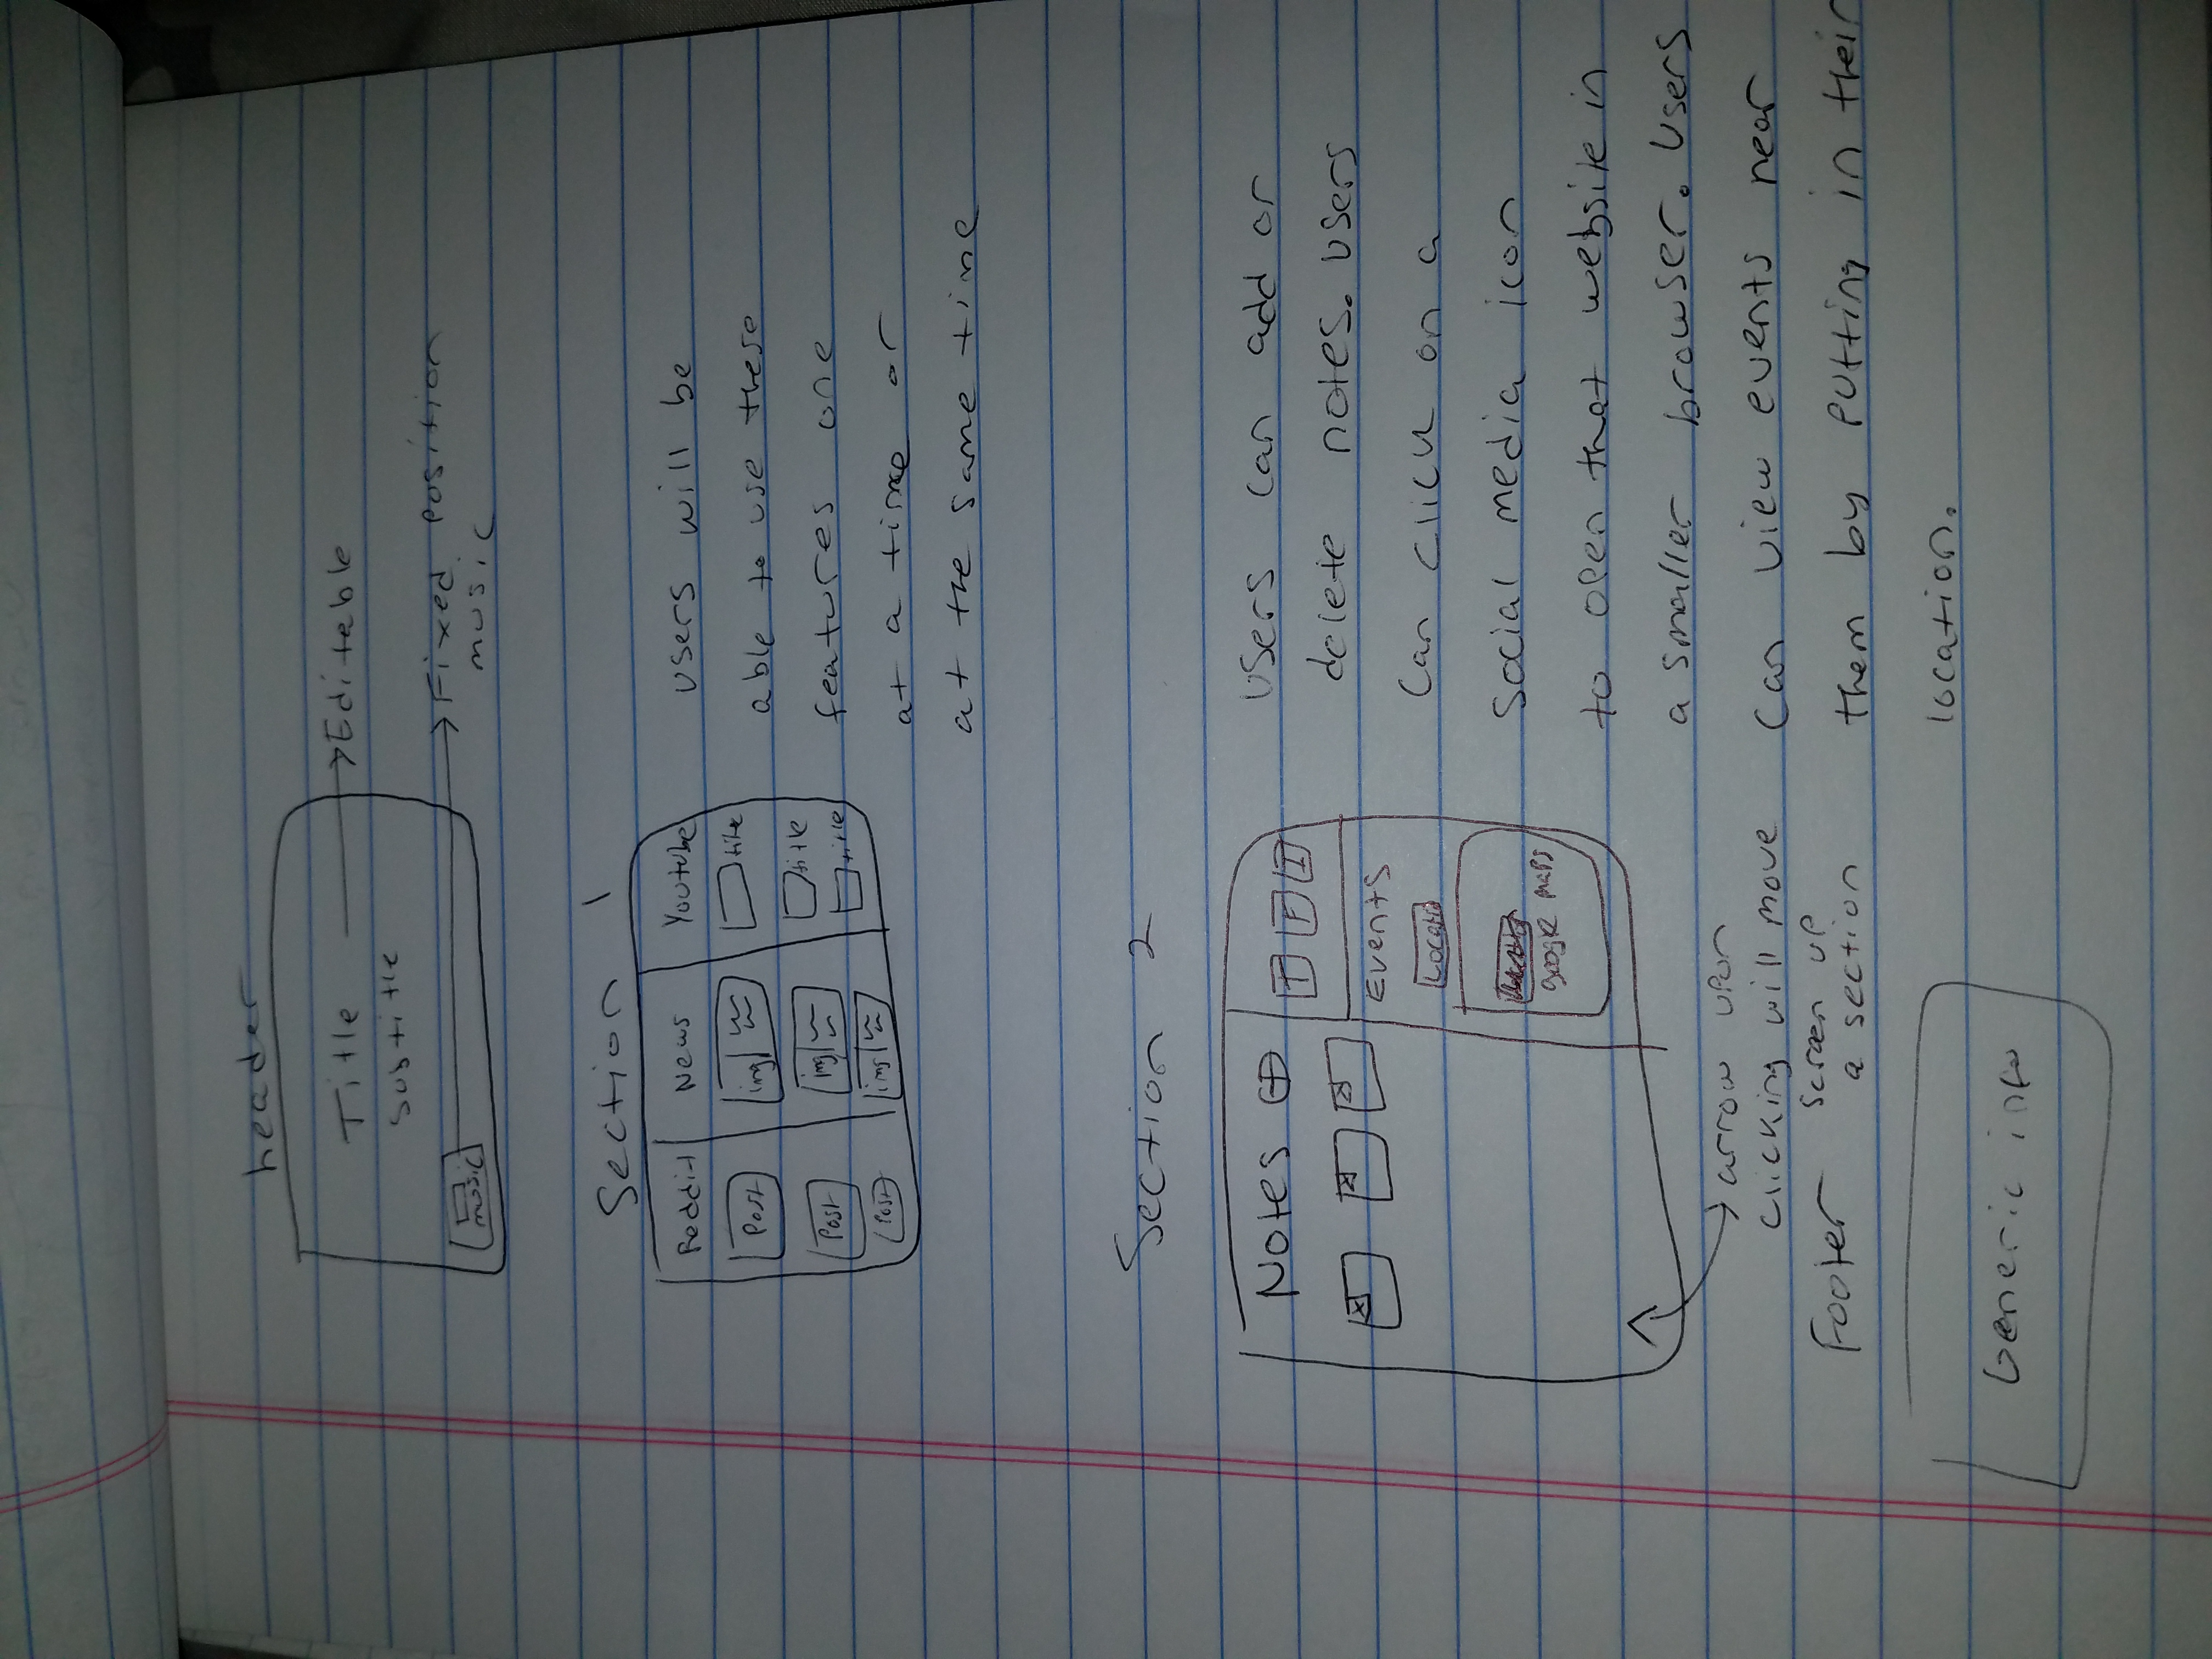 header
Title
Editable
Subtitle
music
Fixed position
music
Section 1
Reddit
News
Youtube
Post
img
title
Post
img
title
Post
img
title
users will be
able to use these
features one
at a time or
at the same time
Section 2
Notes
T F I
Events
Locatio
google maps
arrow upon
clicking will move
screen up
a section
users can add or
delete notes. users
can click on a
social media icon
to open that website in
a smaller browser. Users
can view events near
them by putting in their
location.
Footer
Generic info